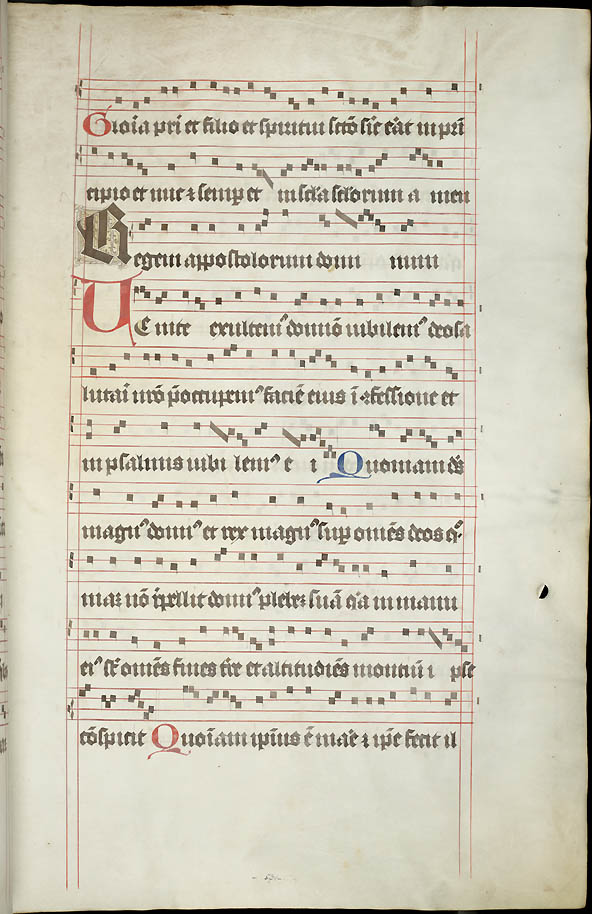 Gloria pri et filio et spiritui scto sic erat in prin
cipio et nunc ⁊ semp et in scla sclorum a men
Regem appostolorum domi num
Uenite exultem⁹ domino iubilem⁹ deo sa
lutari nro p̄occupem⁹ facie eius ī 9fessione et
in psalmis iubi lem⁹ e i Quoniam ds
magn⁹ domin⁹ et rex magn⁹ sup omes deos
non repellit domin⁹ plebē suā q̄a in manu
ei⁹ st omēs fines tre et altitudies montiū i pse
cōspicit Quoniam ipius ē mare ⁊ ipe fecit il